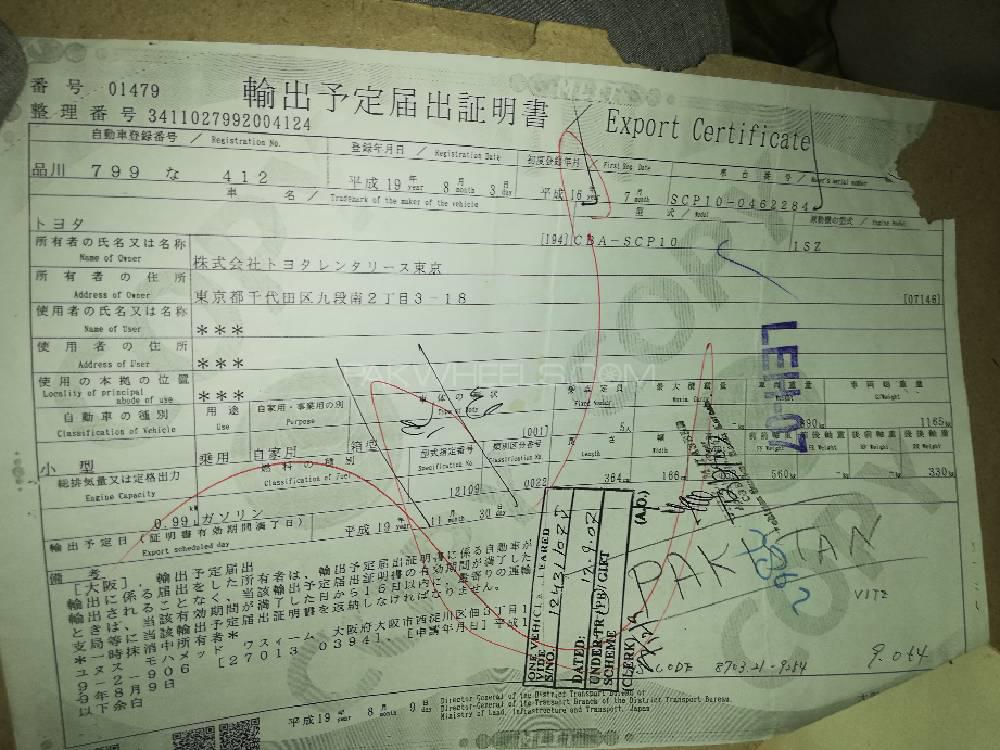 番号 01479
輸出予定届出証明書 Export Certificate
整理番号 3411027992004124
自動車登録番号 / Registration No.
登録年月日 / Registration Date
初度登録年月 / First Reg. Date
車台番号 / Maker's serial number
品川 799 な 412
平成19年year 8月month 3日day
平成16年year 7月month
SCP10-0462284
車名 / Trademark of the maker of the vehicle
型式 / Model
原動機の型式 / Engine Model
トヨタ
[194] CBA-SCP10
1SZ
所有者の氏名又は名称
Name of Owner
株式会社トヨタレンタリース東京
所有者の住所
Address of Owner
東京都千代田区九段南2丁目3-18
[07146]
使用者の氏名又は名称
Name of User
***
使用者の住所
Address of User
***
使用の本拠の位置
Locality of principal abode of use
***
自動車の種別
Classification of Vehicle
用途
Use
自家用・事業用の別
Purpose
車体の形状
乗車定員
最大積載量
車両重量
車両総重量
G/Weight
小型
乗用
自家用
箱型
[001]
5人
1165
総排気量又は定格出力
Engine Capacity
燃料の種別
Classification of fuel
型式指定番号
Specification No.
類別区分番号
Classification No.
長さ
Length
幅
Width
FF Weight
FR Weight
RF Weight
RR Weight
0.99
ガソリン
12109
0022
364cm
166
560kg
330
輸出予定日 (証明書有効期間満了日)
Export scheduled day
平成19年year 11月month 30日day
備考
[大阪],輸出予定届出
輸出に係る届出をした所有者は、輸出予定届出証明書に係る自動車が
輸出されることなく、当該輸出予定届出証明書の有効期間が満了した
ときは、当該有効期間が満了した日から15日以内に、最寄りの運輸
支局等に当該輸出予定届出証明書を返納しなければなりません。
*一時抹消中所有者*
ユヌス モハメッド ワスィーム 大阪府大阪市西淀川区佃3丁目1
9-2-906 [27013 0394],[申請年月日]平成1
9年8月9日
以下余白
平成19年year 8月month 9日day
Director-General of the District Transport Bureau or
Director-General of the Transport Branch of the District Transport Bureau,
Ministry of Land, Infrastructure and Transport, Japan
LEH-07
ONE VEHICLE CLEARED
VIDE
S/NO.
DATED: 12.9.07
UNDER-TR/PB/GIFT
SCHEME
CLERK
(A.O.)
PAKISTAN
VITZ
CODE 8703.21.9084
PAKWHEELS.COM
COPY